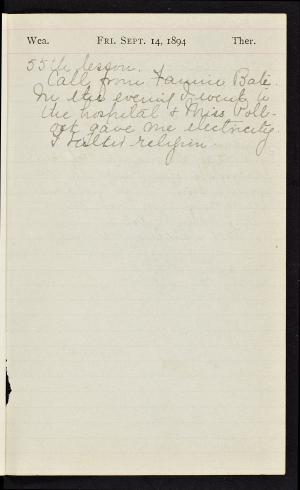 Wea. FRI. SEPT. 14, 1894 Ther.
55th lesson.
Call from Fannie Bate.
In the evening I went to
the hospital & Miss Foll-
get gave me electricity.
I talked religion.